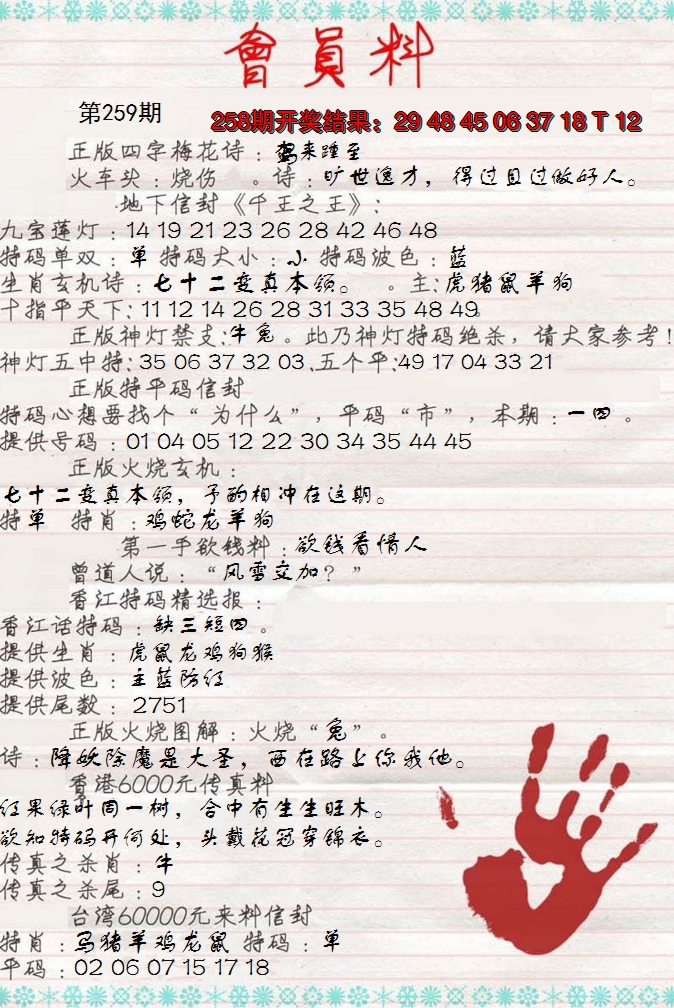 會員料
第259期
258期开奖结果：29 48 45 06 37 18 T 12
正版四字梅花诗：驾来踵至
火车头：烧伤 。诗：旷世逸才，得过且过做好人。
地下信封《千王之王》：
九宝莲灯：14 19 21 23 26 28 42 46 48
特码单双：单 特码大小：小 特码波色：蓝
生肖玄机诗：七十二变真本领。 。主：虎猪鼠羊狗
十指平天下：11 12 14 26 28 31 33 35 48 49
正版神灯禁支：牛兔。此乃神灯特码绝杀，请大家参考！
神灯五中特：35 06 37 32 03．五个平：49 17 04 33 21
正版特平码信封
特码心想要找个“为什么”，平码“市”，本期：一四 。
提供号码：01 04 05 12 22 30 34 35 44 45
正版火烧玄机：
七十二变真本领，予酌相冲在这期。
特单 特肖：鸡蛇龙羊狗
第一手欲钱料：欲钱看情人
曾道人说：“风雪交加？”
香江特码精选报：
香江话特码：缺三短四 。
提供生肖：虎鼠龙鸡狗猴
提供波色：主蓝防红
提供尾数：2751
正版火烧图解：火烧“兔”。
诗：降妖除魔是大圣，西在路上你我他。
香港6000元传真料
红果绿叶同一树，合中有生生旺木。
欲知特码开何处，头戴花冠穿锦衣。
传真之杀肖：牛
传真之杀尾：9
台湾60000元来料信封
特肖：马猪羊鸡龙鼠 特码：单
平码：02 06 07 15 17 18